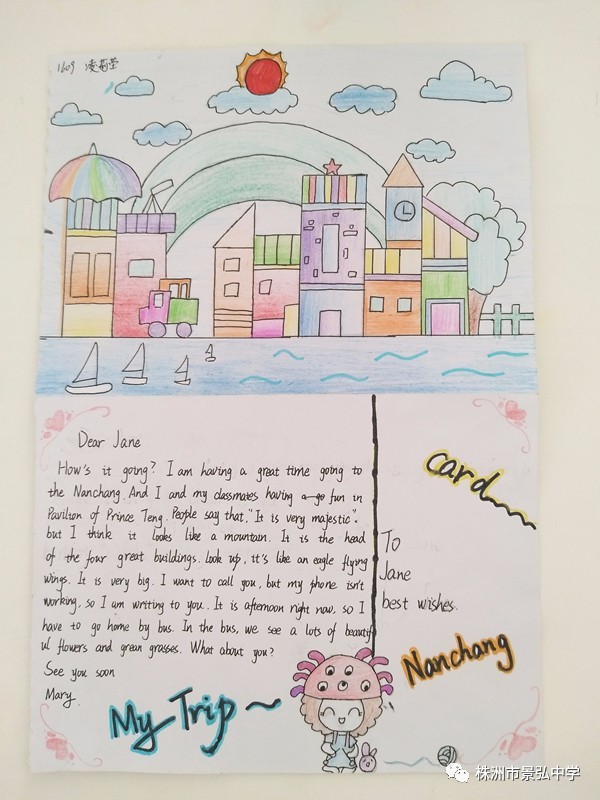 1609 凌莉莹
Dear Jane
How's it going? I am having a great time going to
the Nanchang. And I and my classmates having a go fun in
Pavilion of Prince Teng. People say that, "It is very majestic".
but I think it looks like a mountain. It is the head
of the four great buildings. look up, it's like an eagle flying
wings. It is very big. I want to call you, but my phone isn't
working, so I am writing to you. It is afternoon right now, so I
have to go home by bus. In the bus, we see a lots of beautif
ul flowers and grean grasses. What about you?
See you soon
Mary.
My Trip~
card
To
Jane
best wishes.
Nanchang
株洲市景弘中学